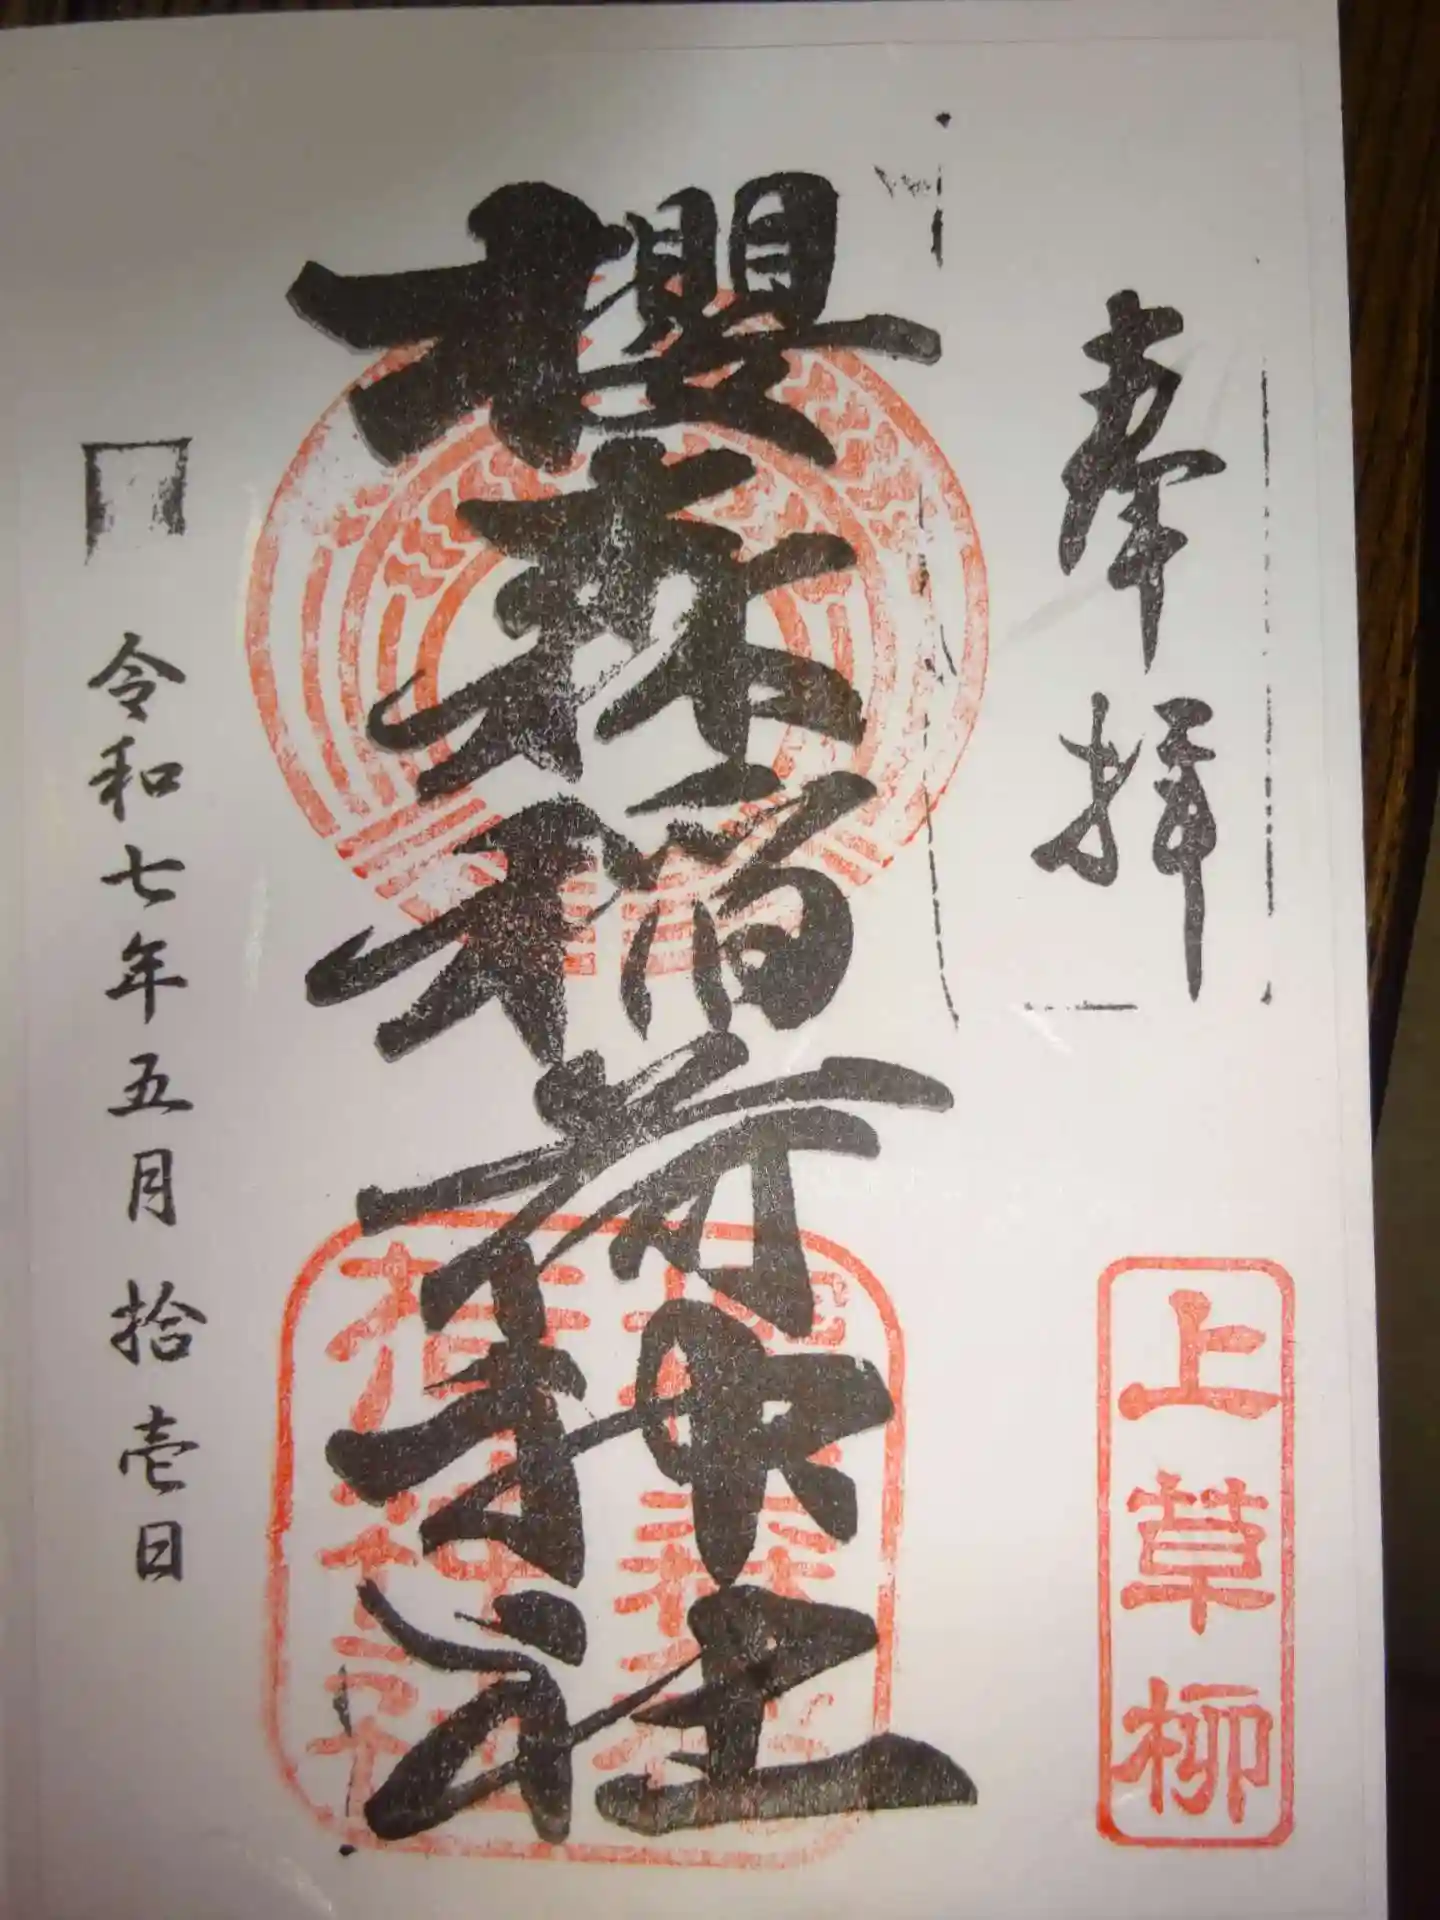 奉拝
上草柳
櫻森稲荷神社
令和七年五月拾壱日